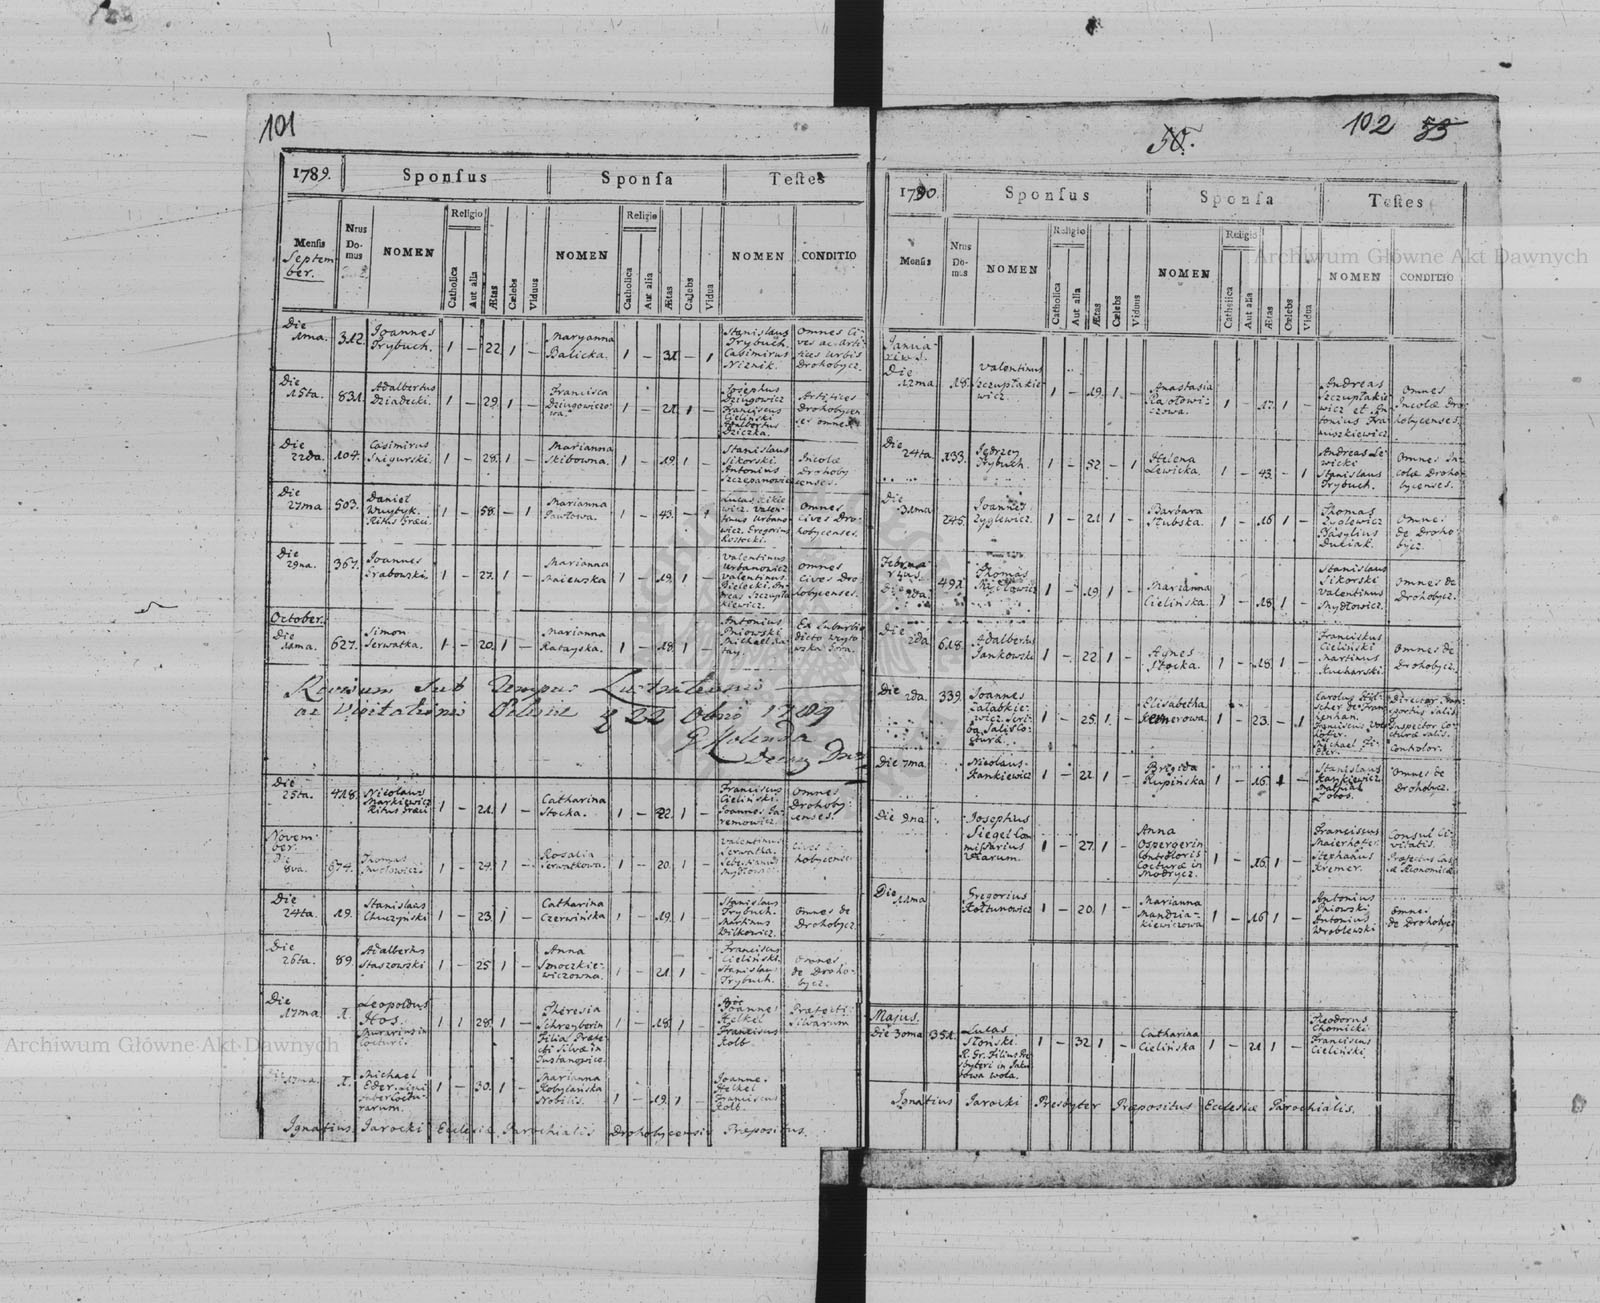 101
1789.
Sponsus
Sponsa
Testes
Mensis
September.
Nrus Domus
NOMEN
Religio
Catholica
Aut alia
Ætas
Cælebs
Viduus
NOMEN
Religio
Catholica
Aut alia
Ætas
Cælebs
Vidua
NOMEN
CONDITIO
Die 1ma. 312. Joannes Trybuch. 1 – 22. 1 – Maryanna Balicka. 1 – 31. – 1 Stanislaus Trybuch. Casimirus Niznik. Omnes Cives ac Artifices Urbis Drohobycz.
Die 15ta. 831. Adalbertus Dziadecki. 1 – 29. 1 – Francisca Dziugowiczowa 1 – 21. 1 – Josephus Dziugowicz Franciscus Cieliński Adalbertus Dziczka. Artifices Drohobycenses omnes.
Die 22da. 104. Casimirus Snigurski. 1 – 28. 1 – Marianna Skibowna. 1 – 19. 1 – Stanislaus Sikorski. Antonius Szczepanowicz Incolæ Drohobycenses.
Die 27ma 503. Daniel Ritus Græci. 1 – 58. – 1 Marianna Pawłowa. 1 – 43. – 1 Lucas Valentinus Urbanowicz. Gregorius Kostecki. Omnes Cives Drohobycenses.
Die 29na. 367. Joannes Grabowski. 1 – 27. 1 – Marianna Maiewska 1 – 19. 1 – Valentinus Urbanowicz Valentinus Bielecki. Andreas Szczupłakiewicz. Omnes Cives Drohobycenses.
October.
Die 627. Simon Serwatka. 1 – 20. 1 – Marianna Ratayska. 1 – 18. 1 – Antonius Pniowski Michael Ratay. Ex Suburbio dicto Woytowska Gora.
Revisum sub tempus Lustrationis
ac Visitationis d 22 Obris 1789
G Kolenda
Die 25ta. 418. Nicolaus Markiewicz Ritus Græci 1 – 21. 1 – Catharina Stocka. 1 – 22. 1 – Franciscus Cieliński. Joannes Jaremowicz. Omnes Drohobycenses.
November.
Die 8va. 674. Thomas Mydłowicz 1 – 24. 1 – Rosalia Serwatkowa. 1 – 20. 1 – Valentinus Serwatka. Sebastianus Mydłowicz Cives Drohobycenses
Die 24ta. 19. Stanislaus Chuczyński 1 – 23. 1 – Catharina Czerwińska 1 – 19. 1 – Stanislaus Trybuch. Martinus Wilkowicz. Omnes de Drohobycz.
Die 26ta. 89. Adalbertus Staszowski 1 – 25. 1 – Anna Smoczkiewiczowna. 1 – 21. 1 – Franciscus Cieliński. Stanislaus Trybuch. Omnes de Drohobycz.
Die 17ma. 1. Leopoldus Hos. 1 1 28. 1 – Theresia Schreyberin Filia Præfecti Silvæ in Justanowice. 1 – 18. 1 – Joannes Helkel Franciscus Kolb. Præfecti Silvarum
Die 17ma. 1. Michael Eder. 1 – 30. 1 – Marianna Kobylańska Nobilis. 1 – 19. 1 – Joannes Helkel Franciscus Kolb.
Ignatius Jarocki Ecclesiæ Parochialis Drohobycensis Præpositus.
50.
102 53
1790.
Sponsus
Sponsa
Testes
Mensis
Nrus Domus
NOMEN
Religio
Catholica
Aut alia
Ætas
Cælebs
Viduus
NOMEN
Religio
Catholica
Aut alia
Ætas
Cælebs
Vidua
NOMEN
CONDITIO
Januarius.
Die 12ma. 18. Valentinus Szczupłakiewicz. 1 – 19. 1 – Anastasia 1 – 17. 1 – Andreas Szczupłakiewicz et Antonius Omnes Incolæ Drohobycenses.
Die 24ta. 133. Jędrzey Trybuch. 1 – 52. – 1 Helena Lewicka. 1 – 43. – 1 Andreas Lewicki Stanislaus Trybuch. Omnes Incolæ Drohobycenses.
Die 31ma 245. Joannes Zyglewicz. 1 – 21 1 – Barbara Stubska. 1 – 16 1 – Thomas Zyglewicz Basylius Dukiak. Omnes de Drohobycz.
Februarius.
Die 2da. 491. Thomas 1 – 19 1 – Marianna Cielińska. 1 – 18 1 – Stanislaus Sikorski Valentinus Mydłowicz. Omnes de Drohobycz.
Die 2da 618. Adalbertus Jankowski 1 – 22 1 – Agnes Stocka. 1 – 18. 1 – Franciskus Cieliński Martinus Kucharski. Omnes de Drohobycz.
Die 2da. 339. Joannes Załabkiewicz. Scriba Salis Cocturæ. 1 – 25. 1 – Elisabetha 1 – 23. – 1 Carolus Michael Director Salis Inspector Cocturæ Salis. Controlor.
Die 7ma Nicolaus Kankiewicz 1 – 21 1 – Brigida Krupińska 1 – 16. 1 – Stanislaus Kankiewicz Mathias Łobos. Omnes de Drohobycz.
Die 9na Josephus Siegel Comissarius Viarum. 1 – 27. 1 – Anna Ospergerin Controloris Cocturæ in Modrycz. 1 – 16. 1 – Franciscus Maierhofer. Stephanus Kremer. Consul Civitatis. Præfectus
Die 11ma Gregorius Kołtunowicz 1 – 20. 1 – Marianna Mandziakiewiczowa 1 – 16 1 – Antonius Pniowski Antonius Wroblewski Omnes de Drohobycz
Majus.
Die 30ma 351. Lucas Słoński. R. Gr. Filius Presbyteri in Jakubowa wola. 1 – 32 1 – Catharina Cielińska 1 – 21 1 – Theodorus Chomicki Franciscus Cieliński.
Ignatius Jarocki Presbyter Præpositus Ecclesiæ Parochialis.
Archiwum Główne Akt Dawnych
Archiwum Główne Akt Dawnych